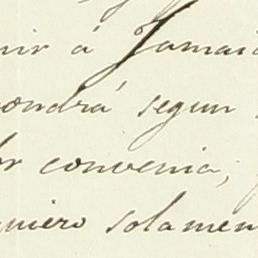 nir á Jamaic
pondrá segun
or convenia;
quiero solamen